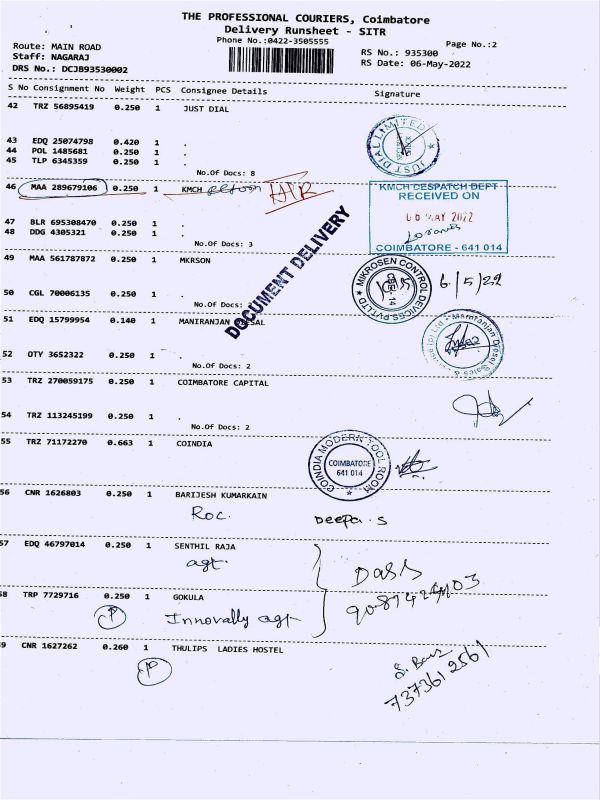 THE PROFESSIONAL COURIERS, Coimbatore
Delivery Runsheet - SITR
Phone No.:0422-3505555
Page No.:2
Route: MAIN ROAD
RS No.: 935300
Staff: NAGARAJ
RS Date: 06-May-2022
DRS No.: DCJB93530002
S No Consignment No Weight PCS Consignee Details Signature
42 TRZ 56895419 0.250 1 JUST DIAL
JUST DIAL LIMITED
43 EDQ 25074798 0.420 1 .
44 POL 1485681 0.250 1 .
45 TLP 6345359 0.250 1 .
No.Of Docs: 8
46 MAA 289679106 0.250 1 KMCH
KMCH DESPATCH DEPT
RECEIVED ON
06 MAY 2022
COIMBATORE - 641 014
47 BLR 695308470 0.250 1 .
48 DDG 4305321 0.250 1 .
No.Of Docs: 3
DOCUMENT DELIVERY
49 MAA 561787872 0.250 1 MKRSON
MIKROSEN CONTROL DEVICES PVT LTD
6/5/22
50 CGL 70006135 0.250 1 .
No.Of Docs:
51 EDQ 15799954 0.140 1 MANIRANJAN
52 OTY 3652322 0.250 1 .
No.Of Docs: 2
53 TRZ 270059175 0.250 1 COIMBATORE CAPITAL
54 TRZ 113245199 0.250 1 .
No.Of Docs: 2
55 TRZ 71172270 0.663 1 COINDIA
COINDIA MODERN TOOL ROOM
COIMBATORE
641 014
56 CNR 1626803 0.250 1 BARIJESH KUMARKAIN
Roc. Deepa. S
57 EDQ 46797014 0.250 1 SENTHIL RAJA
agt.
Dass
58 TRP 7729716 0.250 1 GOKULA
Innovally agt
59 CNR 1627262 0.260 1 THULIPS LADIES HOSTEL
7373612561